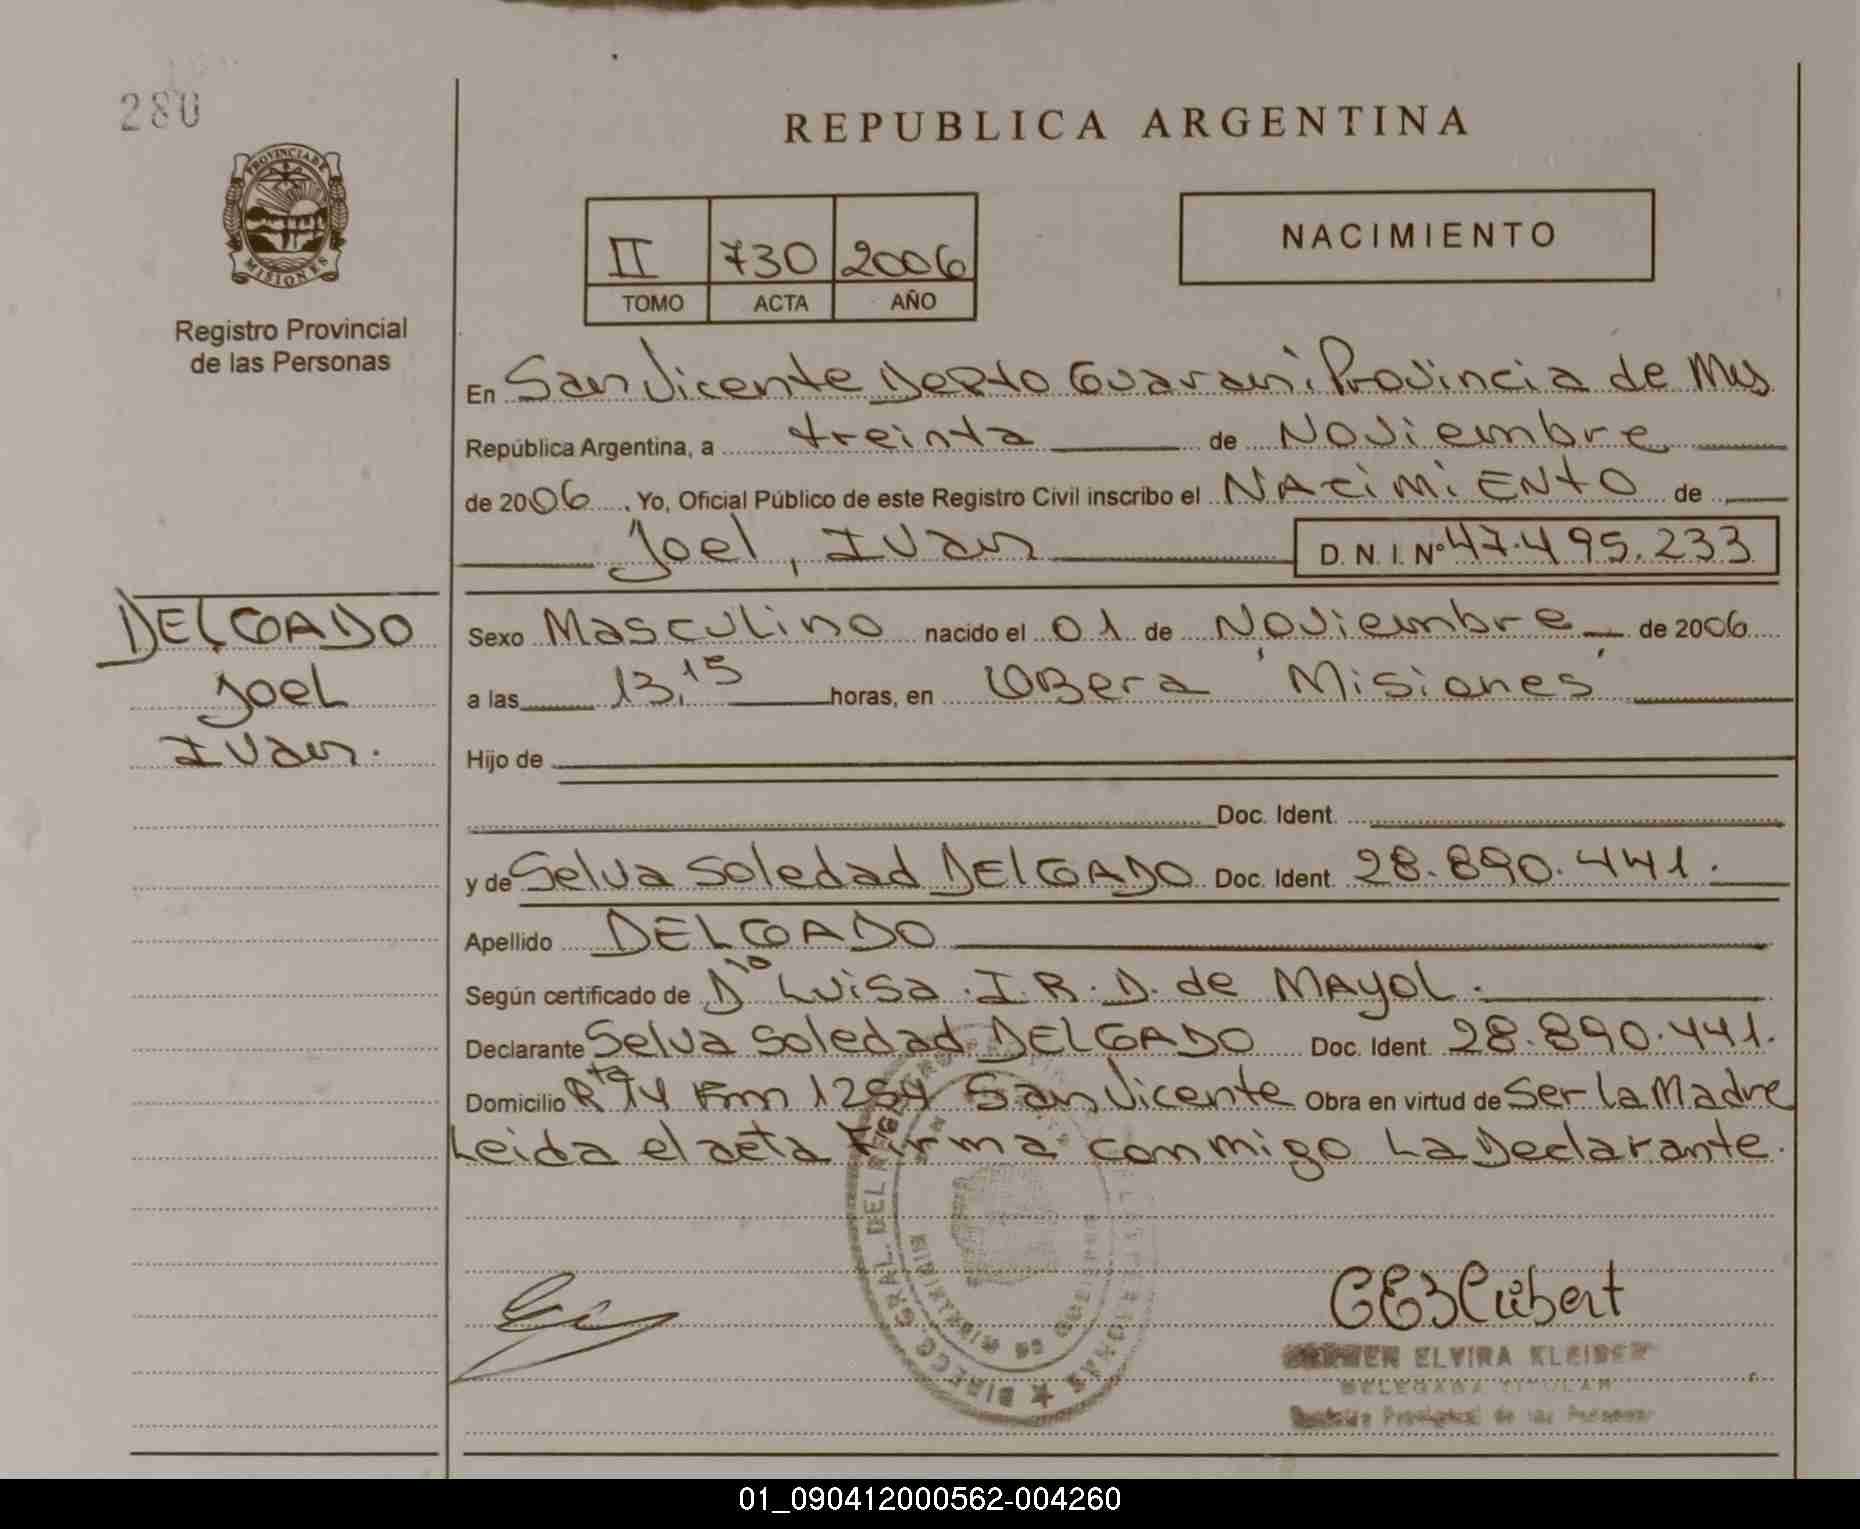 280
PROVINCIA DE
MISIONES
Registro Provincial
de las Personas
REPUBLICA ARGENTINA
II 730 2006
TOMO ACTA AÑO
NACIMIENTO
En San Vicente Depto Guarani Provincia de Mns
República Argentina, a treinta de Noviembre
de 2006, Yo, Oficial Público de este Registro Civil inscribo el NAciMiENtO de
Joel, Ivan D. N. I. Nº 47.495.233
DELGADO
Joel
Ivan.
Sexo Masculino nacido el 01 de Noviembre de 2006
a las 13,15 horas, en Obera 'Misiones'
Hijo de
Doc. Ident.
y de Selva Soledad DElGADO Doc. Ident. 28.890.441.
Apellido DELGADO
Según certificado de Luisa . I. R. D. de MAyoL.
Declarante Selva Soledad DELGADO Doc. Ident. 28.890.441.
Domicilio Rta 14 Km 1254 San Vicente Obra en virtud de Ser la Madre
Leida el acta Firma conmigo La Declarante.
DIRECC. GRAL. DEL REG
ELVIRA KLEIBER
DELEGADA TITULAR
Registro Provincial de las Personas
01_090412000562-004260